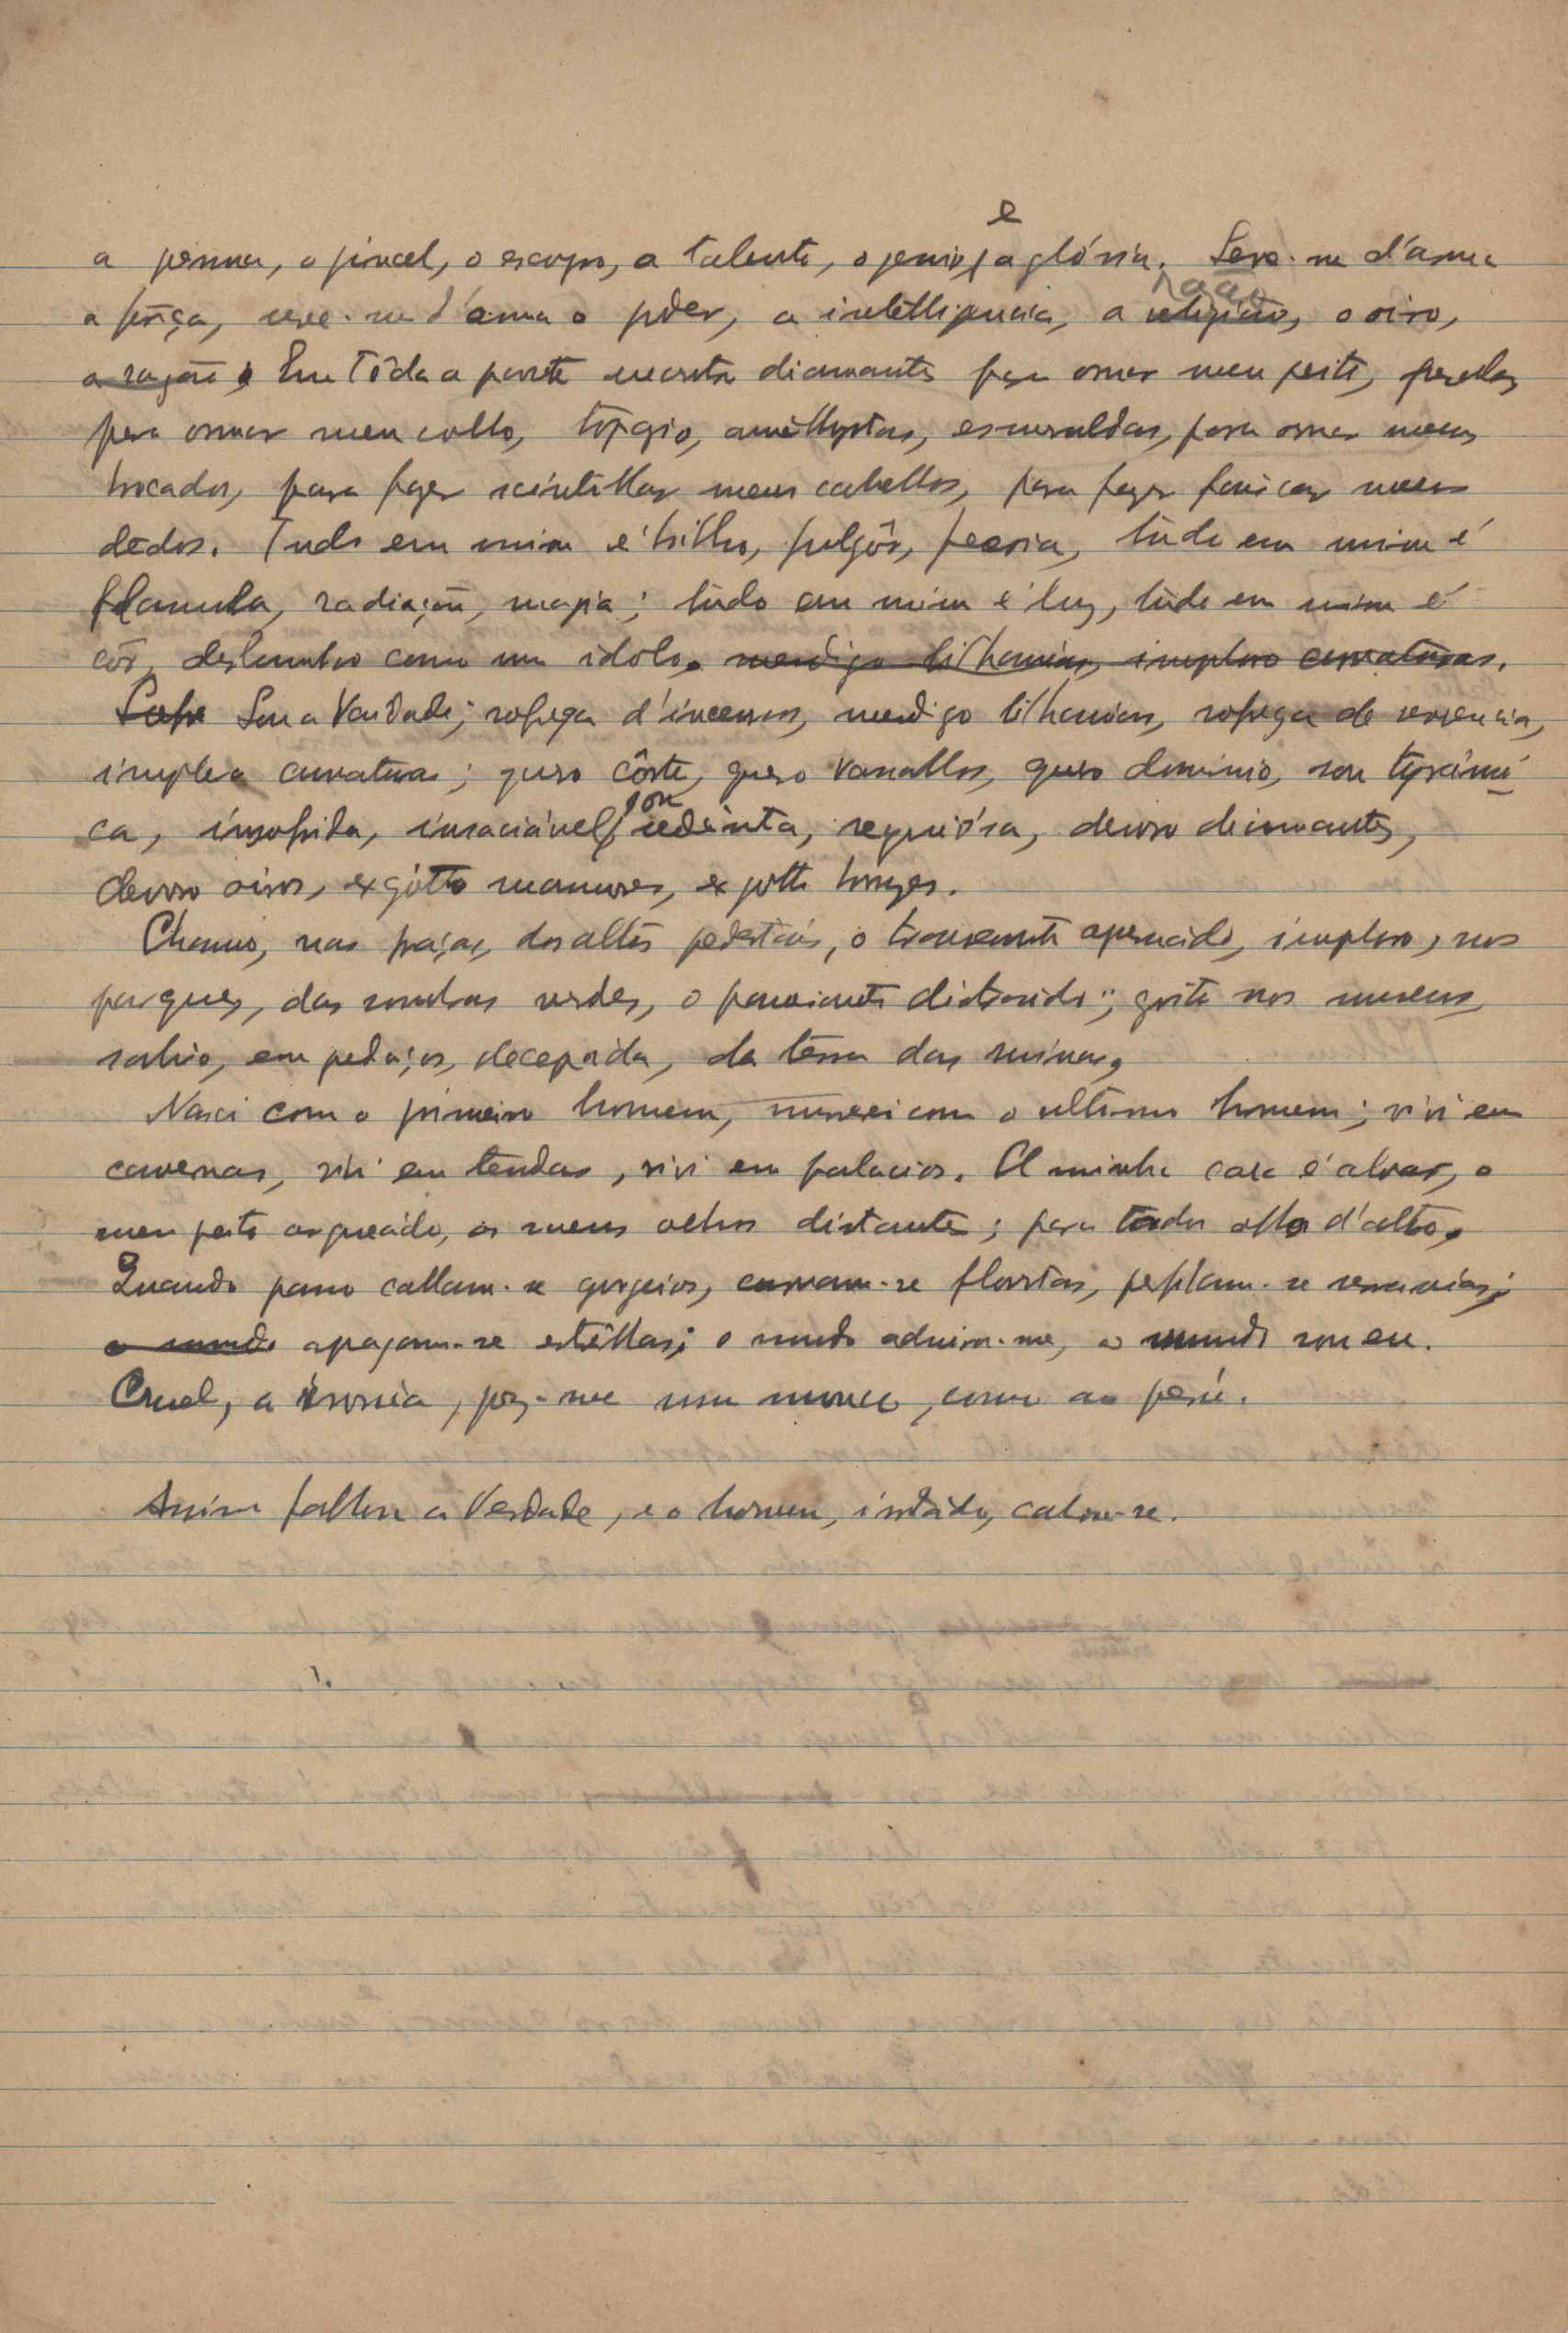 a penna, o pincel, o escopro, o talento, o genio, e a glória. Serve-me d'arma
a fôrça, serve-me d'arma o pôder, a intelligencia, a religião, razão o oiro,
a razão. Em tôda a parte encontro diamantes para ornar meu peito, perolas
para ornar meu collo, topazio, amethystas, esmeraldas, para ornar meus
brocados, para fazer scintillar meus cabellos, para fazer faiscar meus
dedos. Tudo em mim é brilho, fulgôr, feeria, tudo em mim é
flamula, radiação, magia; tudo em mim é luz, tudo em mim é
côr, deslumbro como um idolo. mendigo lithanias, imploro curvaturas.
Sou a Vaidade; sofrega d'incensos, mendigo lithanias, sofrega de reverencia,
imploro curvaturas; quero côrte, quero vassallos, quero dominio, sou tyranni-
ca, insofrida, insaciável, sou sedenta, sequiósa, devoro diamantes,
devoro oiros, exgótto marmores, exgotto bronzes.
Chamo, nas praças, dos altos pedestaes, o transeunte apressado, imploro, nos
parques, das sombras verdes, o passeante distraido; grito nos museus,
sahio, em pedaços, decepada, da terra das ruinas,
Nasci com o primeiro homem, morrerei com o ultimo homem; vivi em
cavernas, vivi em tendas, vivi em palacios. A minha cara é alvar, o
meu peito arqueado, os meus olhos distantes; para todos olho d'alto.
Quando passo callam-se gorgeios, curvam-se florestas, perfilam-se serranias;
o mundo apagam-se estrellas; o mundo admira-me, o mundo sou eu.
Cruel, a ironia, poz-me um monco, como ao perú.
Assim fallou a Verdade, e o homem, irritado, calou-se.